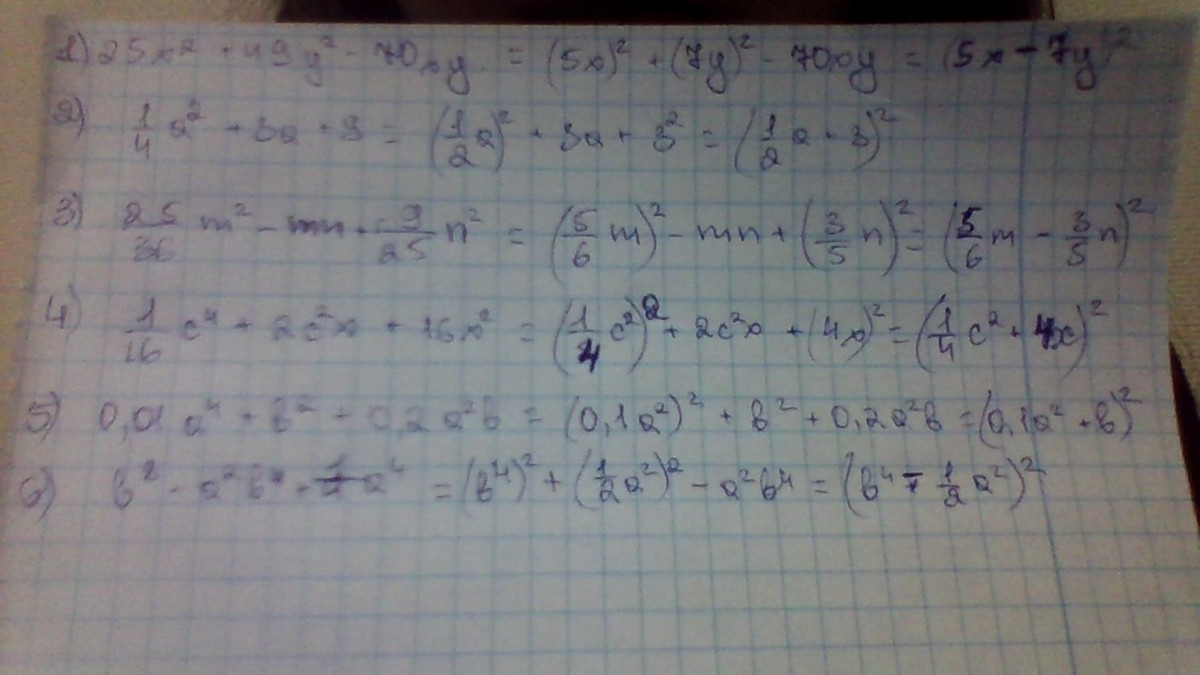 1) 25x² + 49y² - 70xy = (5x)² + (7y)² - 70xy = (5x - 7y)²
2) 1/4 a² + 3a + 9 = (1/2 a)² + 3a + 3² = (1/2 a + 3)²
3) 25/36 m² - mn + 9/25 n² = (5/6 m)² - mn + (3/5 n)² = (5/6 m - 3/5 n)²
4) 1/16 c⁴ + 2c²x + 16x² = (1/4 c²)² + 2c²x + (4x)² = (1/4 c² + 4x)²
5) 0,01a⁴ + b² + 0,2a²b = (0,1a²)² + b² + 0,2a²b = (0,1a² + b)²
6) b² - a²b⁴ + 1/4 a⁴ = (b⁴)² + (1/2 a²)² - a²b⁴ = (b⁴ - 1/2 a²)²